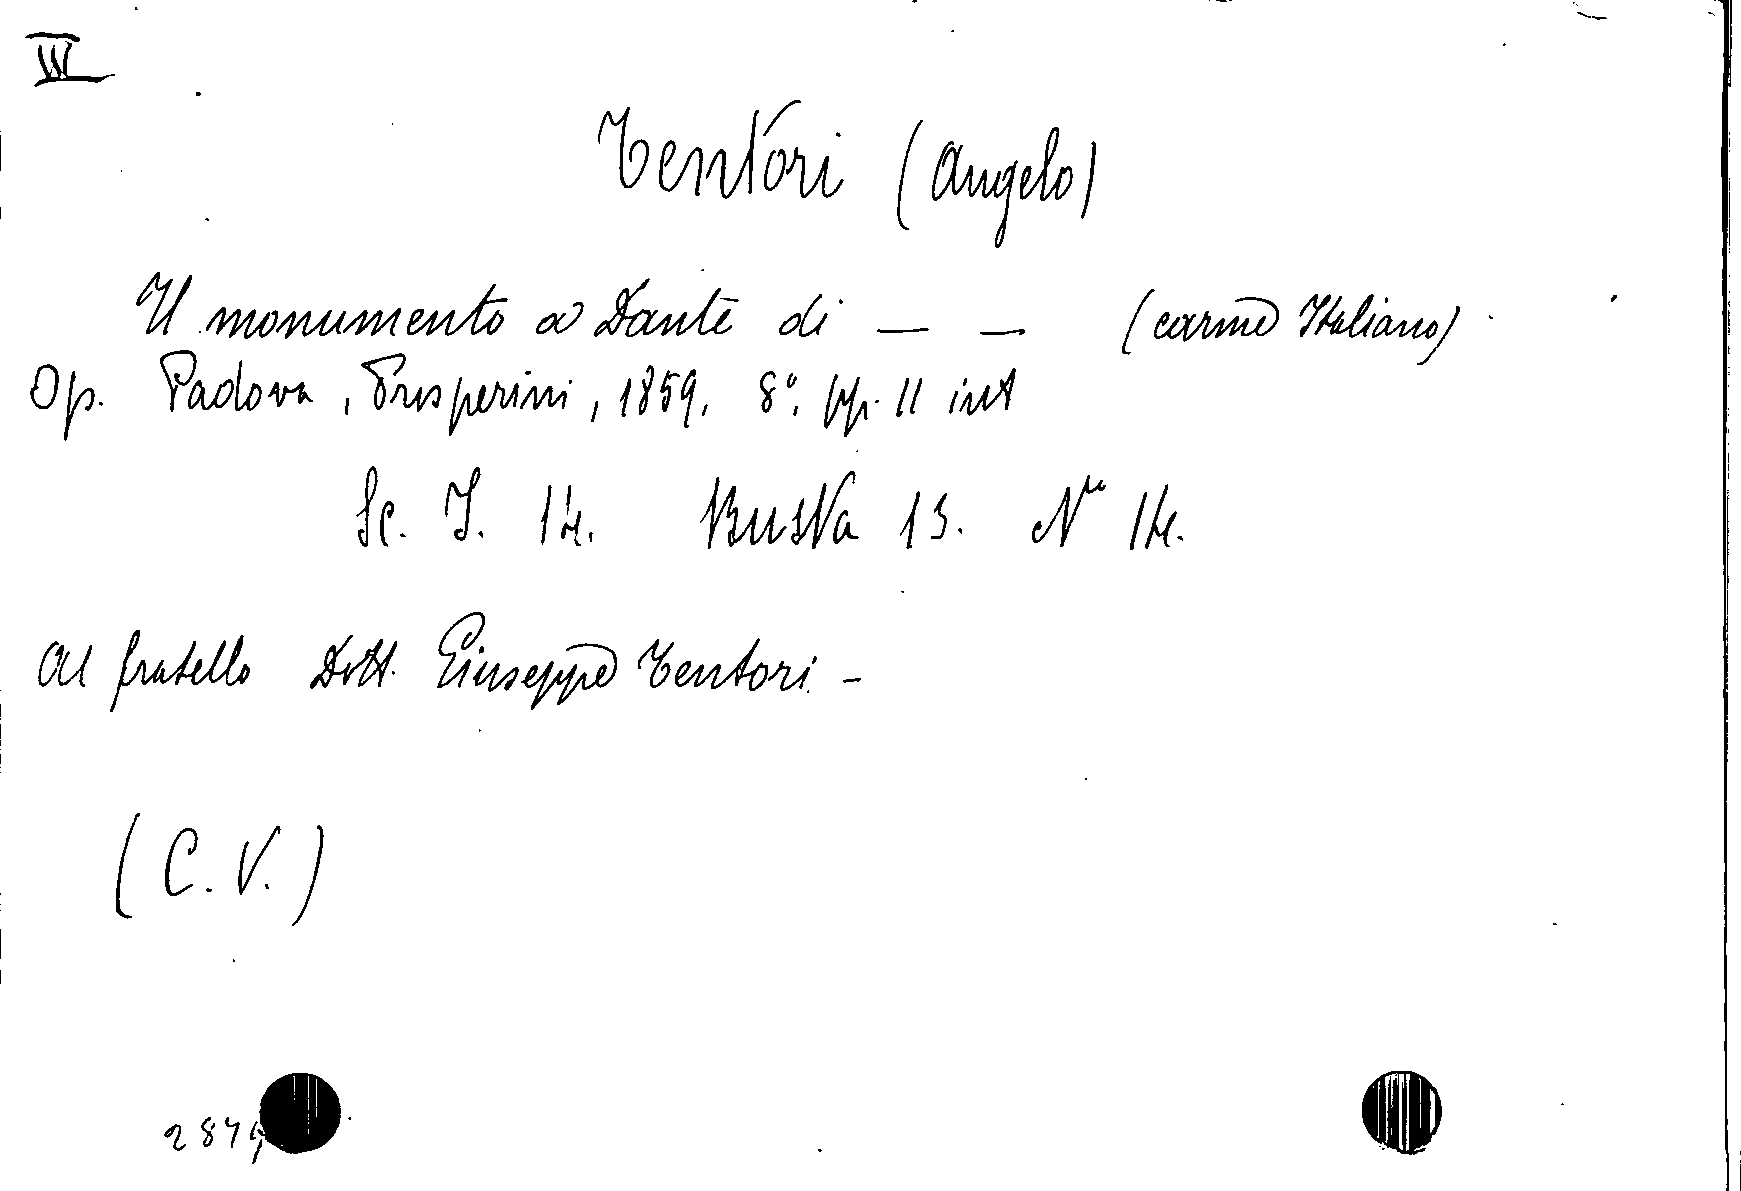 III
Tentori (Angelo)
Il monumento a Dante di — — (carme Italiano)
Op. Padova, Prosperini, 1859. 8°. pp. 11 int
Sc. I. 14. Busta 13. N° 14.
Al fratello Dott. Giuseppe Tentori -
(C. V.)